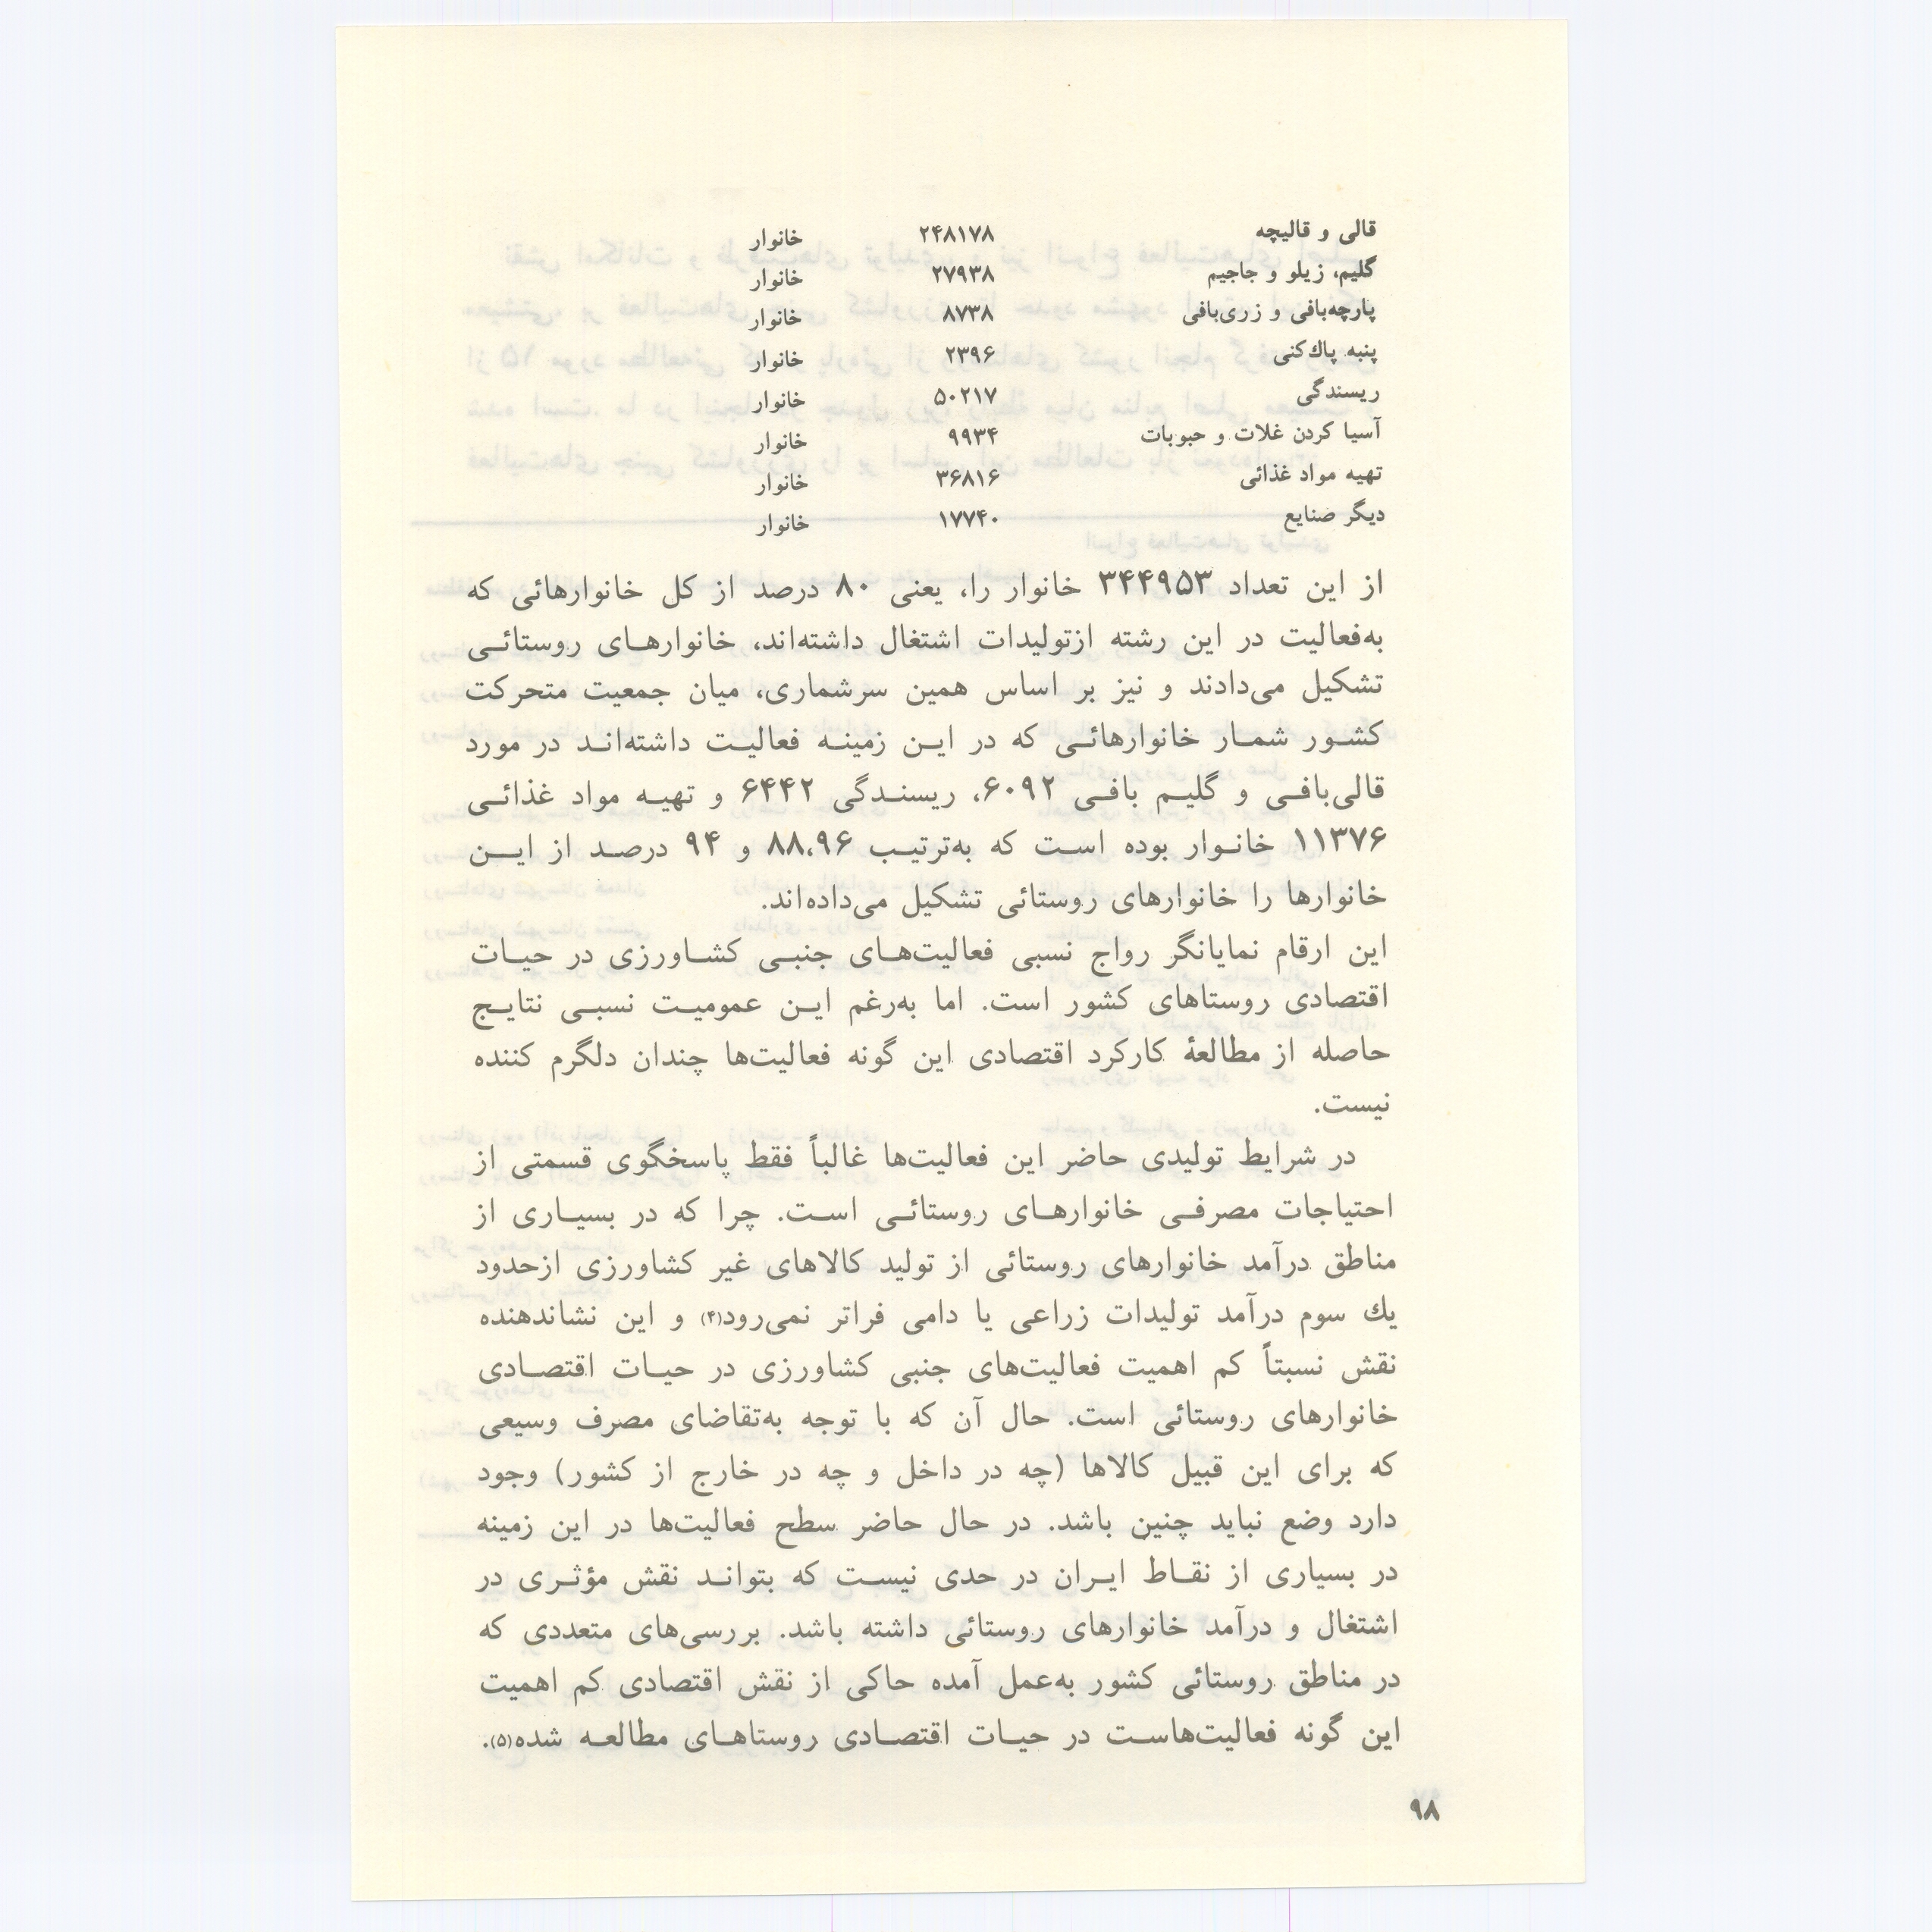 قالی و قالیچه ۲۴۸۱۷۸ خانوار
گلیم، زیلو و جاجیم ۲۷۹۳۸ خانوار
پارچه‌بافی و زری‌بافی ۸۷۳۸ خانوار
پنبه پاك‌کنی ۲۳۹۶ خانوار
ریسندگی ۵۰۲۱۷ خانوار
آسیا کردن غلات و حبوبات ۹۹۳۴ خانوار
تهیه مواد غذائی ۳۶۸۱۶ خانوار
دیگر صنایع ۱۷۷۴۰ خانوار
از این تعداد ۳۴۴۹۵۳ خانوار را، یعنی ۸۰ درصد از کل خانوارهائی که
به‌فعالیت در این رشته ازتولیدات اشتغال داشته‌اند، خانوارهـای روستائـی
تشکیل می‌دادند و نیز بر اساس همین سرشماری، میان جمعیت متحرکت
کشـور شمـار خانوارهائـی که در ایـن زمینـه فعالیـت داشته‌انـد در مورد
قالی‌بافـی و گلیـم بافـی ۶۰۹۲، ریسنـدگی ۶۴۴۲ و تهیـه مواد غذائـی
۱۱۳۷۶ خانـوار بوده اسـت که به‌ترتیـب ۸۸،۹۶ و ۹۴ درصـد از ایـــن
خانوارها را خانوارهای روستائی تشکیل می‌داده‌اند.
این ارقام نمایانگر رواج نسبی فعالیت‌هـای جنبـی کشـاورزی در حیـات
اقتصادی روستاهای کشور است. اما به‌رغم ایـن عمومیـت نسبـی نتایـج
حاصله از مطالعهٔ کارکرد اقتصادی این گونه فعالیت‌ها چندان دلگرم کننده
نیست.
در شرایط تولیدی حاضر این فعالیت‌ها غالباً فقط پاسخگوی قسمتی از
احتیاجات مصرفـی خانوارهـای روستائـی اسـت. چرا که در بسیـاری از
مناطق درآمد خانوارهای روستائی از تولید کالاهای غیر کشاورزی ازحدود
یك سوم درآمد تولیدات زراعی یا دامی فراتر نمی‌رود(۴) و این نشاندهنده
نقش نسبتاً کم اهمیت فعالیت‌های جنبی کشاورزی در حیـات اقتصـادی
خانوارهای روستائی است. حال آن که با توجه به‌تقاضای مصرف وسیعی
که برای این قبیل کالاها (چه در داخل و چه در خارج از کشور) وجود
دارد وضع نباید چنین باشد. در حال حاضر سطح فعالیت‌ها در این زمینه
در بسیاری از نقـاط ایـران در حدی نیسـت که بتوانـد نقش مؤثـری در
اشتغال و درآمد خانوارهای روستائی داشته باشد. بررسی‌های متعددی که
در مناطق روستائی کشور به‌عمل آمده حاکی از نقش اقتصادی کم اهمیت
این گونه فعالیت‌هاسـت در حیـات اقتصـادی روستاهـای مطالعـه شده(۵).
۹۸